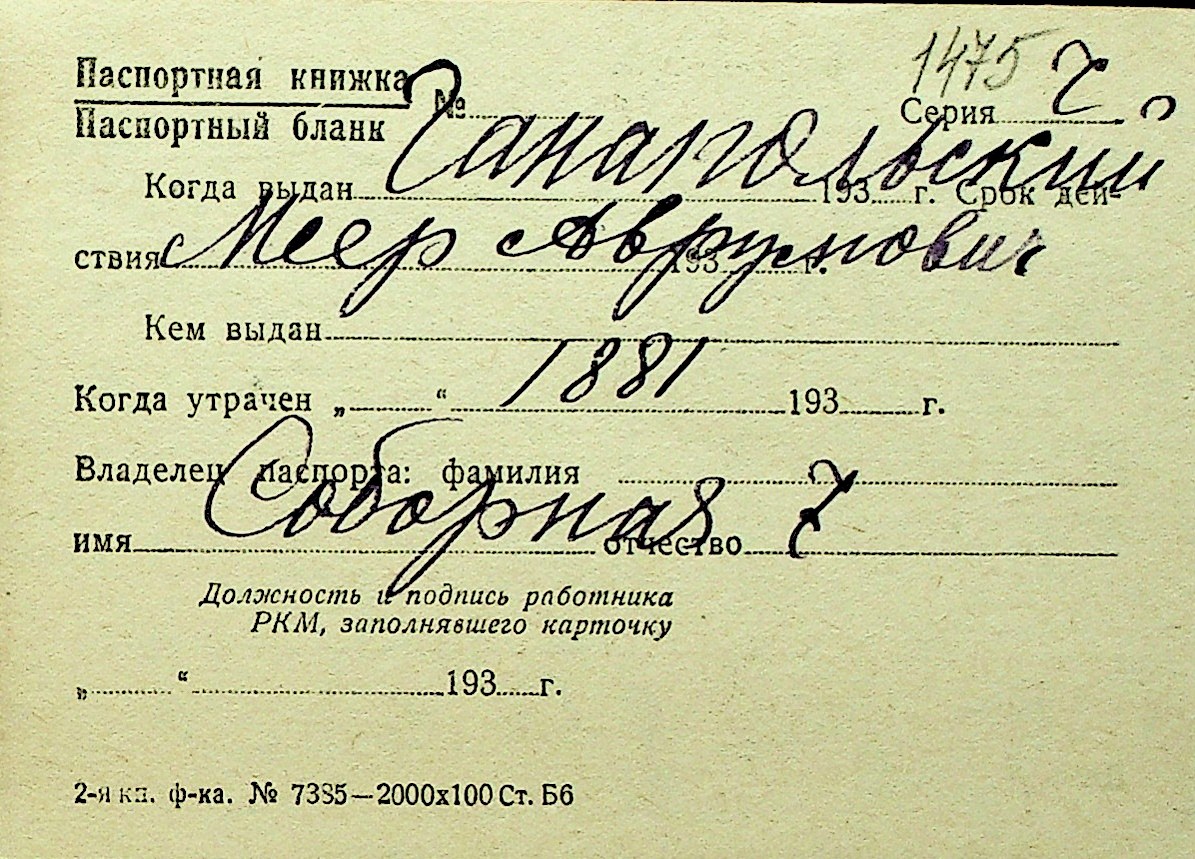 1475 Ч
Паспортная книжка
Паспортный бланк № Серия
Чанапольский
Когда выдан 193 г. Срок дей-
ствия 193 г.
Меер Аврумович
Кем выдан
1881
Когда утрачен „ “ 193 г.
Владелец паспорта: фамилия
Соборная 7
имя отчество
Должность и подпись работника
РКМ, заполнявшего карточку
„ “ 193 г.
2-я кн. ф-ка. № 7385—2000х100 Ст. Б6